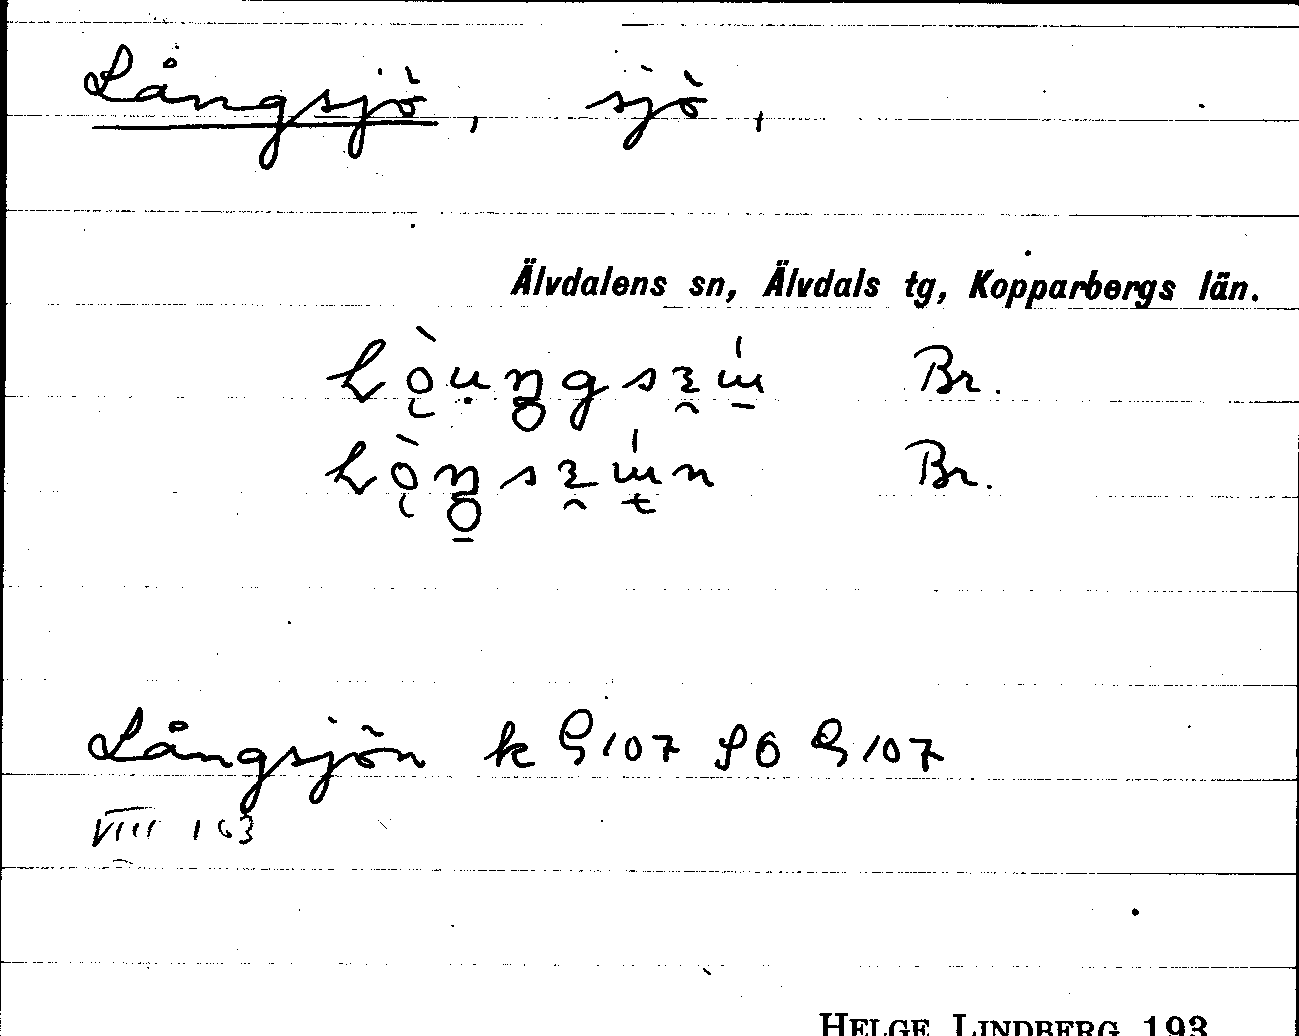 Långsjö, sjö,
Älvdalens sn, Älvdals tg, Kopparbergs län.
Br.
Br.
Långsjön k G107 SO G107
VIII 163
HELGE LINDBERG 193